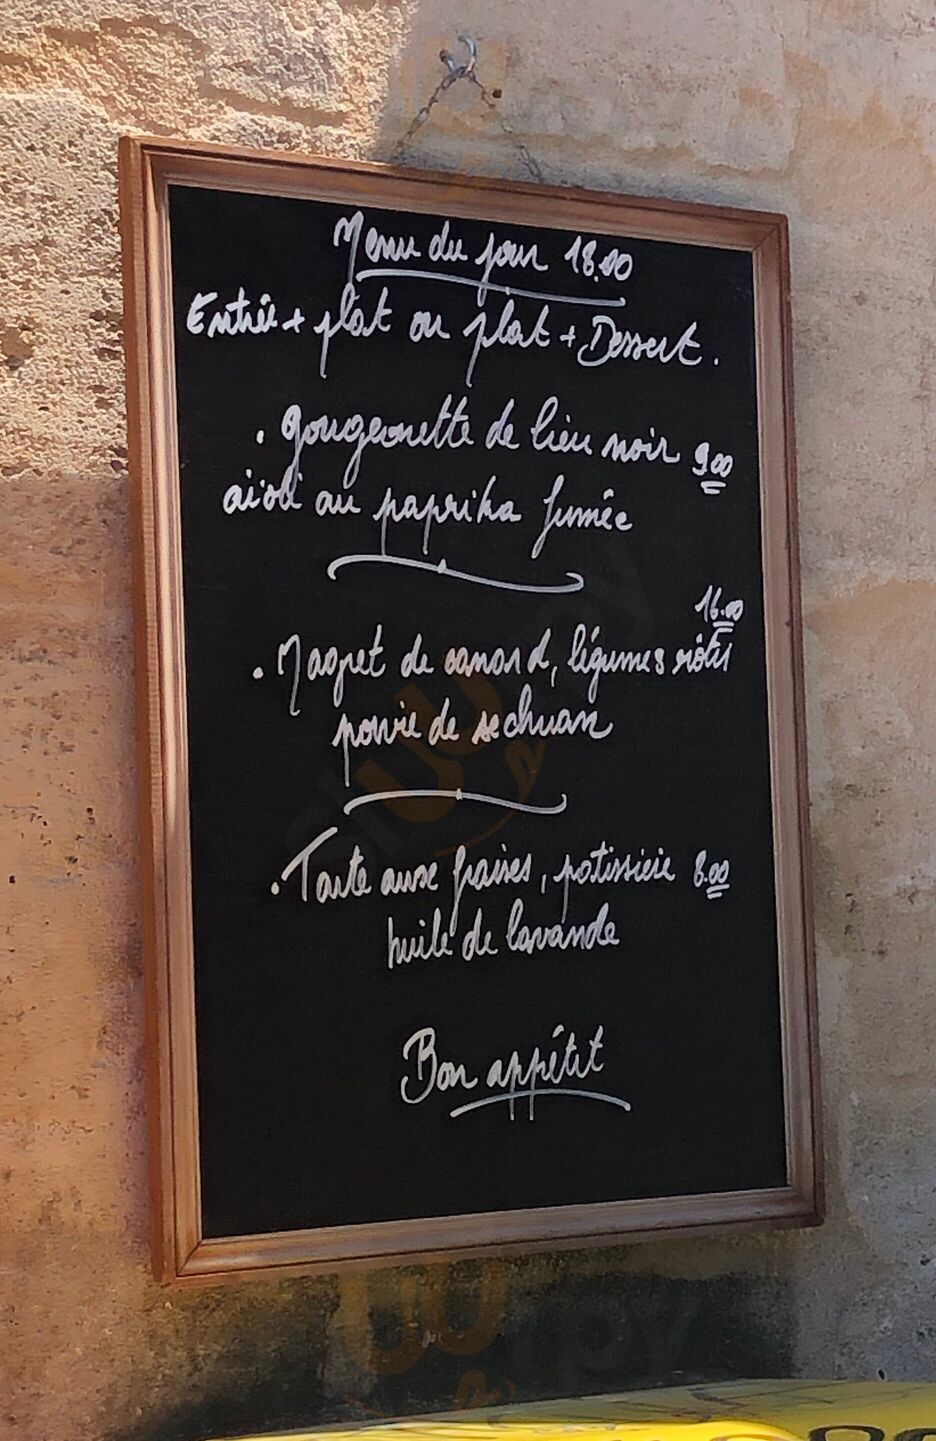 Menu du jour 18.00
Entrée + plat ou plat + Dessert.
. gougeonette de lieu noir 9.00
aïoli au paprika fumée
16.00
. Magret de canard, légumes rôtis
poivre de sechuan
. Tarte aux fraises, patissiere 8.00
huile de lavande
Bon appétit